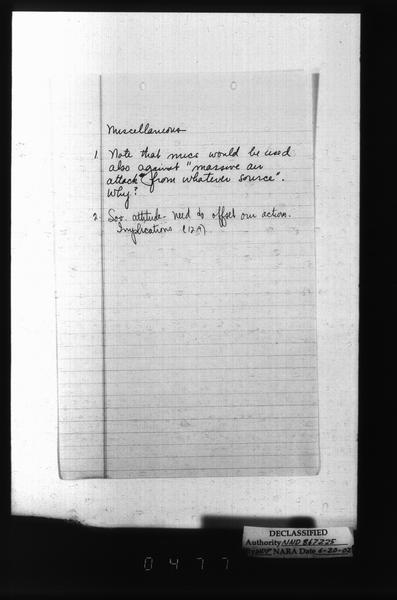 Miscellaneous
1. Note that mucs would be used
also against "massive air
attack" (from whatever source".
Why?
2. Sov. attitude - need to offset our action.
Implications (12A)
DECLASSIFIED
Authority NND 867225
By NARA Date 6-20-02
0477